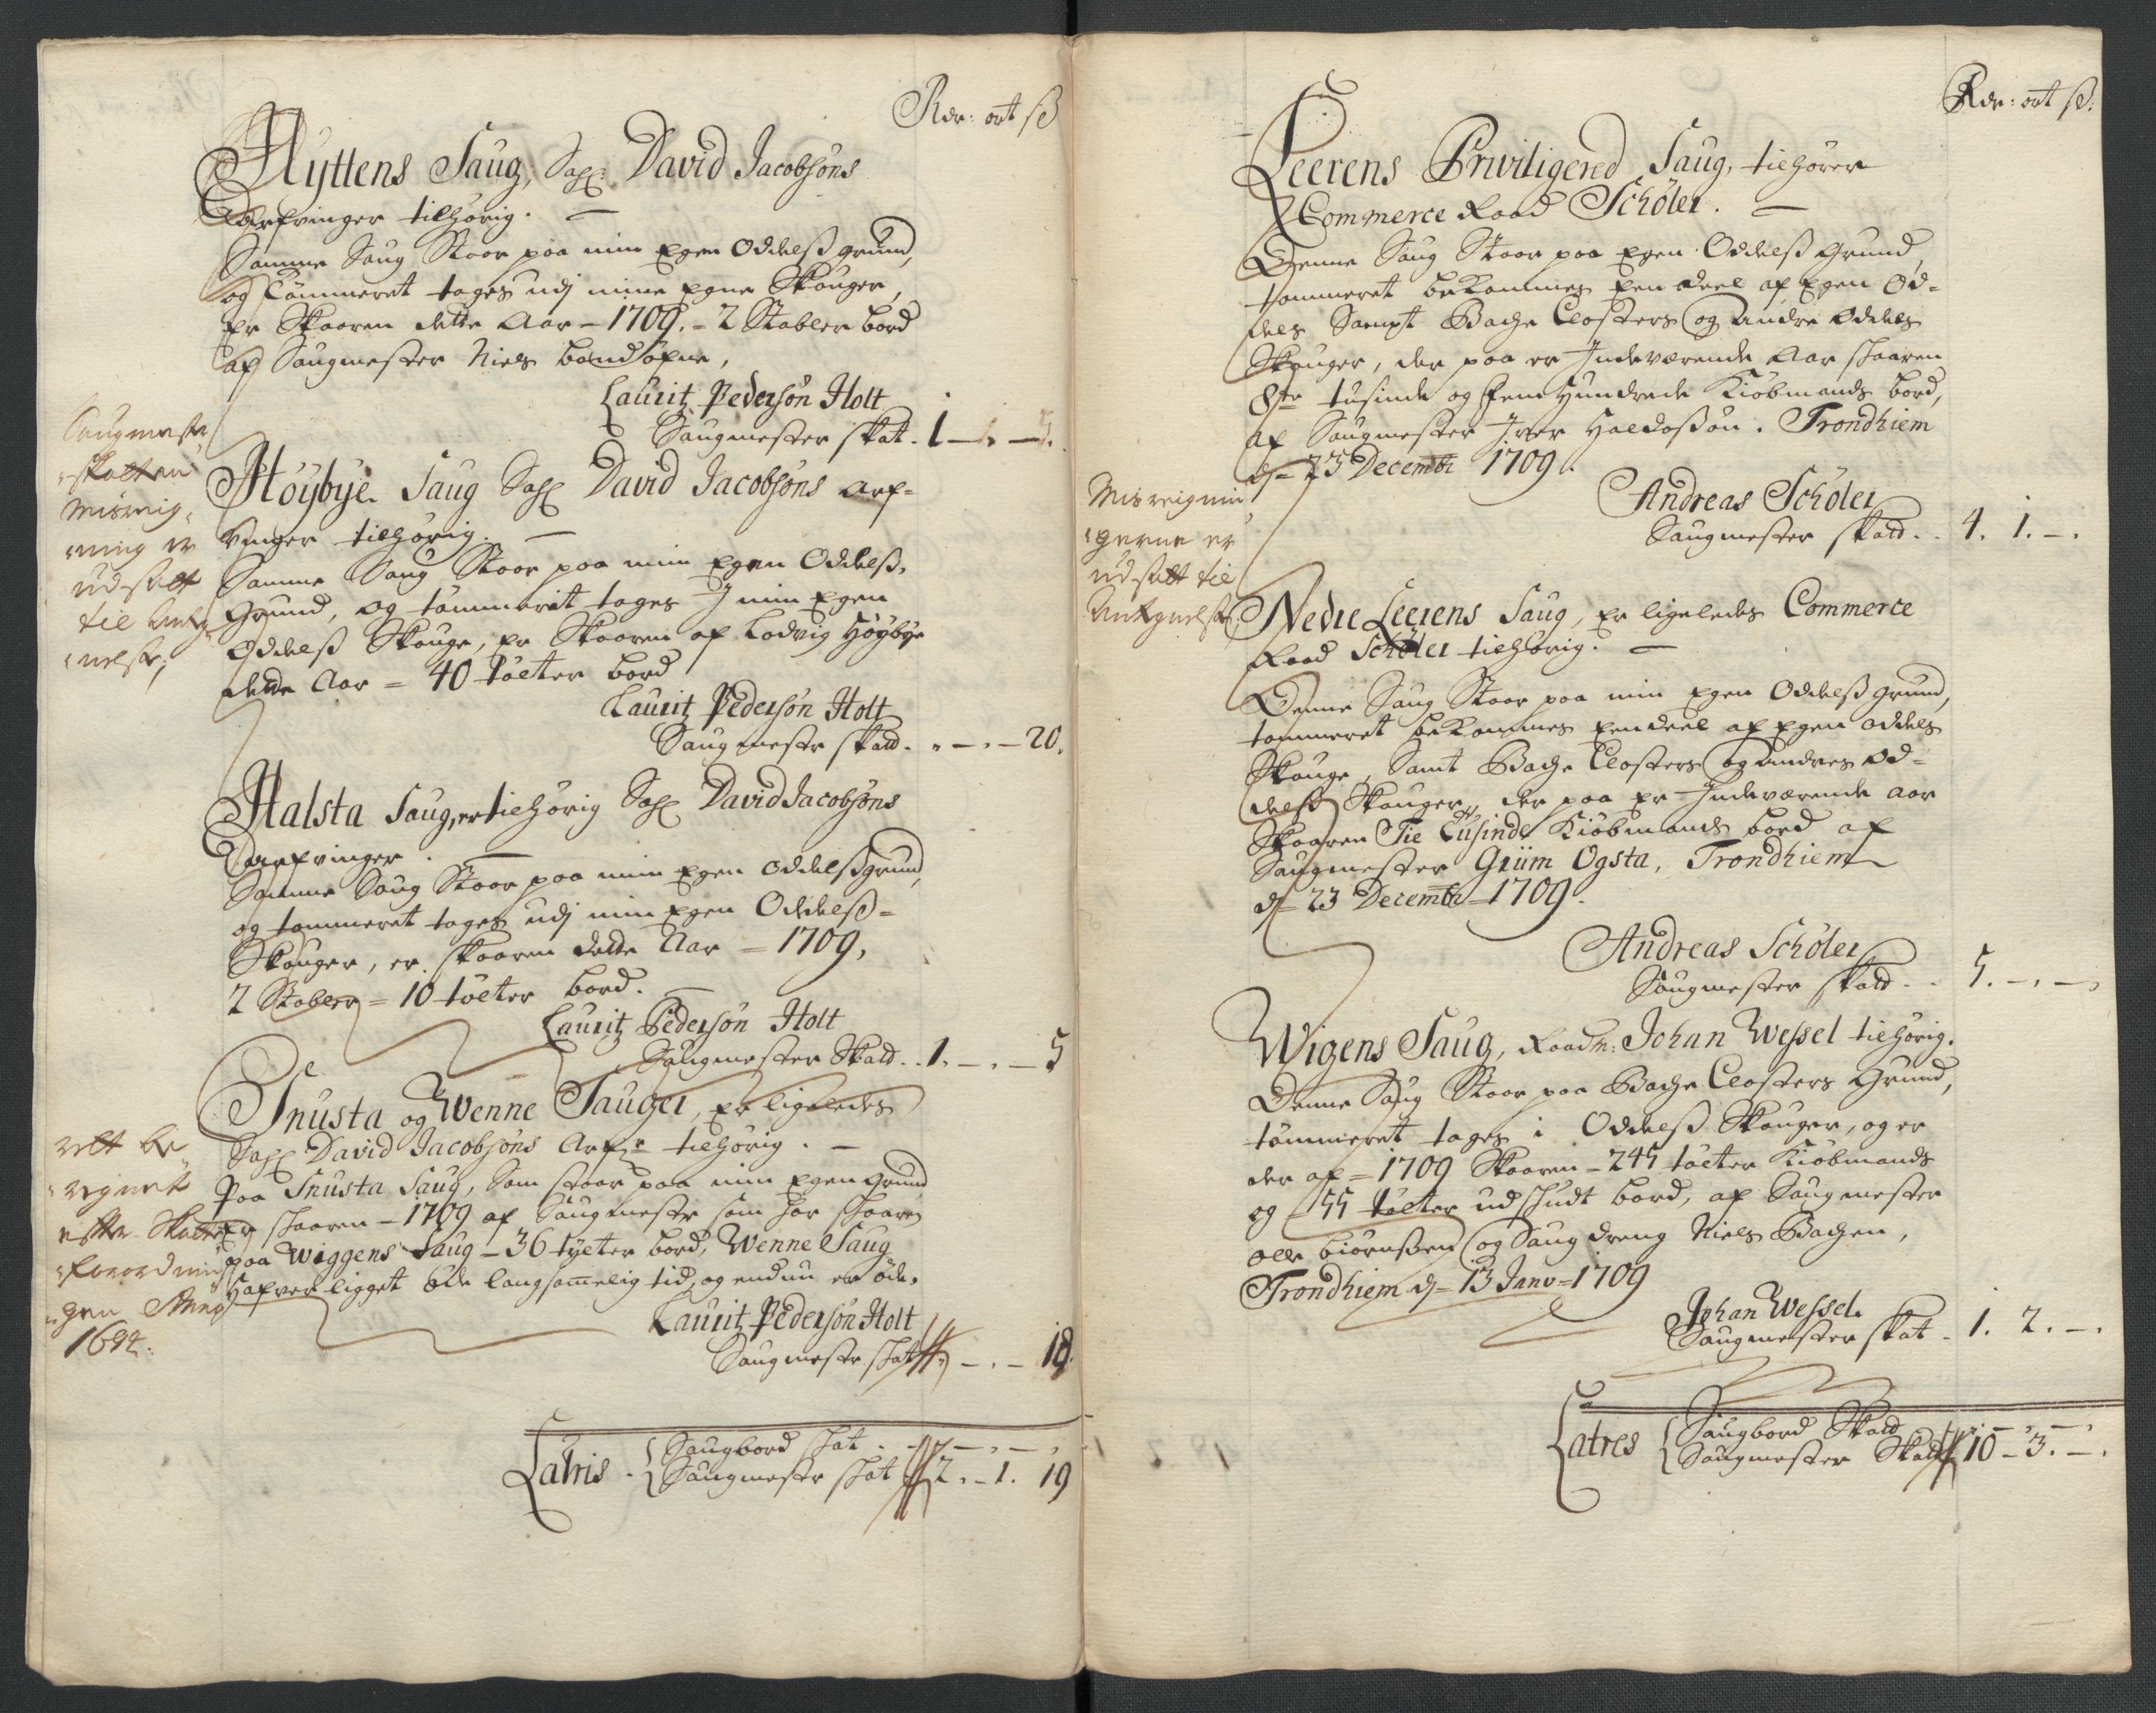 Rdr: ort ß
Hÿttens Saug, Sahl: David Jacobsøns
arfvinger tilhørig.
Samme Saug Staar paa min Egen Oddelß grund,
og tømmeret tages udj mine Egne Skouger,
Er Skaaren dette Aar - 1709. - 2 Stabler bord
af Saugmester Niels
Lauritz Pedersøn Holt
Saugmester skat. 1 - . - 5.
Saugmester
skatten
Misreig-
ning er
udsatt
til Anteg-
nelse;
Høÿbÿe Saug Sahl David Jacobsøns arf-
vinger tilhørig.
Samme Saug Staar paa min Egen Oddelß,
Grund, og tømmerit tages J min Egen
Oddelß Skouge, er Skaaren af Lodvig Høÿbÿe
dette Aar = 40 tølter bord
Lauritz Pedersøn Holt
Saugmester skatt. . - . - 20.
Halsta Saug, er tilhørig Sahl David Jacobsøns
arfvinger.
Samme Saug Staar paa min Egen Oddelßgrund
og tømmeret tages udj min Egen Oddelß-
Skouger, er skaaren dette Aar = 1709,
2 Stabler = 10 tølter bord.
Lauritz Pedersøn Holt
Saugmester Skatt. . 1. - . - 5
Snusta og Wenne Sauger, er ligeledes
Sahl David Jacobsøns Arfr tilhørig.
Paa Snusta Saug, Som staar paa min Egen grund
Er skaaren - 1709 af Saugmester som har skaaren
paa Wiggens Saug - 36 tÿlter bord, Wenne Saug
Hafver ligget øde langsommelig tid, og endnu er øde.
Lauritz Pedersøn Holt
Saugmester skat - . - 18.
rett be-
regnet
efter Skatte
forordnin-
gen Anno
1694.
Latris { Saugbord skat . . - . - .
Saugmester skat 2. - 1. 19
Rdr: ort ß.
Leerens Priviligered Saug, tilhører
Commerce Raad Schøler.
Denne Saug Staar paa Egen Oddelß Grund,
tømmeret bekommes Een deel af Egen Od-
dels Sampt Bache Closters og andre Oddels
Skouger, der paa er Indeværende Aar skaaren
Otte tusinde og fem Hundrede Kiøbmands bord,
af Saugmester Iver Haldoßøn. Trondhiem
d= 23 Decembr 1709.
Andreas Schøler
Saugmester skatt. . 4. 1. - .
Misreignin-
gerne er
udsatt til
Antegnelse;
Nedre Leerens Saug, Er ligeledes Commerce
Raad Schøler tilhørig.
Denne Saug Staar paa min Egen Oddelß grund,
tømmeret bekommes Eendeel af Egen oddels
Skouge, Samt Bache Closters og andres Od-
delß Skouger, der paa er Indeværende aar
Skaaren Tie Tusinde Kiøbmands bord af
Saugmester Griim Ogsta, Trondhiem
d= 23 Decembr - 1709.
Andreas Schøler
Saugmester skatt. . 5. - . -
Wigens Saug, Raadm: Johan Wessel tilhørig.
Denne Saug Staar paa Bache Closters Grund,
tømmeret tages i Oddelß Skouger, og er
der af = 1709 Skaaren - 245 tølter Kiøbmands
og - 55 tølter udskudt bord, af Saugmester
olle biørnßen og Saug dreng Niels Bachen,
Trondhiem d= 13 Janv = 1709
Johan Wessel.
Saugmester skat - 1. 2. - .
Latres { Saugbord Skatt - . - .
Saugmester Skatt 10 - 3. - .